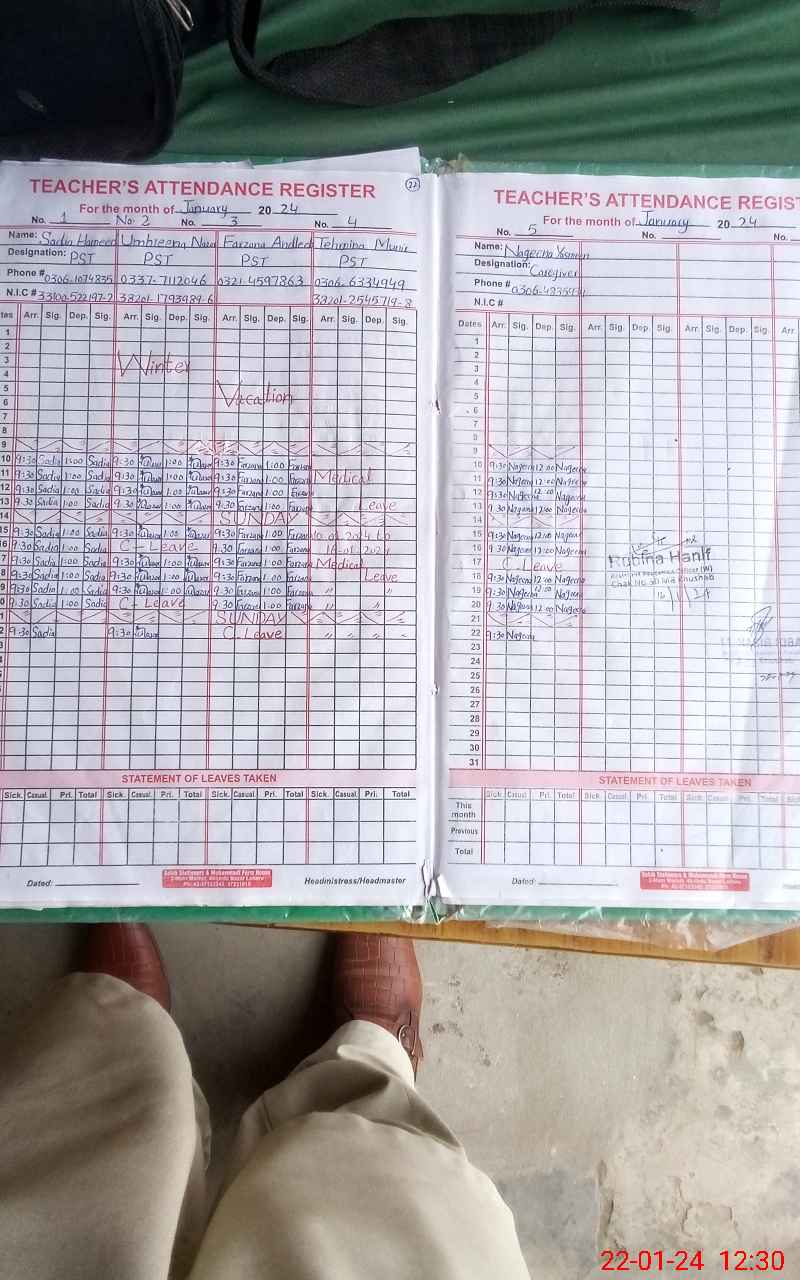 TEACHER'S ATTENDANCE REGISTER
22
For the month of January 2024
No. 1 No. 2 No. 3 No. 4
Name: Sadia Hameed Umbreena Farzana Andleeb Tehmina Munir
Designation: PST PST PST PST
Phone # 0306-1074835 0337-7112046 0321-4597863 0306-6334949
N.I.C # 38201-1793489-6 38201-2545719-8
Arr. Sig. Dep. Sig. Arr. Sig. Dep. Sig. Arr. Sig. Dep. Sig. Arr. Sig. Dep. Sig.
1
2
3
Winter
4
5
Vacation
6
7
8
9
10 9:30 Sadia 1:00 Sadia 9:30 1:00 9:30 Farzana 1:00 Farzana
11 9:30 Sadia 1:00 Sadia 9:30 1:00 9:30 Farzana 1:00 Farzana Medical
12 9:30 Sadia 1:00 Sadia 9:30 1:00 9:30 Farzana 1:00 Farzana
13 9:30 Sadia 1:00 Sadia 9:30 1:00 9:30 Farzana 1:00 Farzana Leave
14 SUNDAY
15 9:30 Sadia 1:00 Sadia 9:30 1:00 9:30 Farzana 1:00 Farzana
16 9:30 Sadia 1:00 Sadia C-Leave 9:30 Farzana 1:00 Farzana
7 9:30 Sadia 1:00 Sadia 9:30 1:00 9:30 Farzana 1:00 Farzana Medical
8 9:30 Sadia 1:00 Sadia 9:30 1:00 9:30 Farzana 1:00 Farzana Leave
9 9:30 Sadia 1:00 Sadia 9:30 1:00 9:30 Farzana 1:00 Farzana " "
0 9:30 Sadia 1:00 Sadia C-Leave 9:30 Farzana 1:00 Farzana " "
SUNDAY
2 9:30 Sadia 9:30 C.Leave " " "
STATEMENT OF LEAVES TAKEN
Sick. Casual. Pri. Total Sick. Casual. Pri. Total Sick. Casual. Pri. Total Sick. Casual. Pri. Total
Dated:
Headministress/Headmaster
TEACHER'S ATTENDANCE REGIST
For the month of January 2024
No. 5 No. No.
Name: Nageena Yasmeen
Designation: Caregiver
Phone #
N.I.C #
Dates Arr. Sig. Dep. Sig. Arr. Sig. Dep. Sig. Arr. Sig. Dep. Sig. Arr.
1
2
3
4
5
6
7
8
9
10 9:30 Nageena 12:00 Nageena
11 9:30 Nageena 12:00 Nageena
12 9:30 Nageena 12:00 Nageena
13 9:30 Nageena 12:00 Nageena
14
15 9:30 Nageena 12:00 Nageena
16 9:30 Nageena 12:00 Nageena
17 C-Leave
Rubina Hanif
18 9:30 Nageena 12:00 Nageena
19 9:30 Nageena 12:00 Nageena
20 9:30 Nageena 12:00 Nageena
21
22 9:30 Nageena
23
24
25
26
27
28
29
30
31
STATEMENT OF LEAVES TAKEN
Sick. Casual. Pri. Total Sick. Casual. Pri. Total Sick. Casual. Pri. Total Sick
This month
Previous
Total
Dated:
22-01-24 12:30